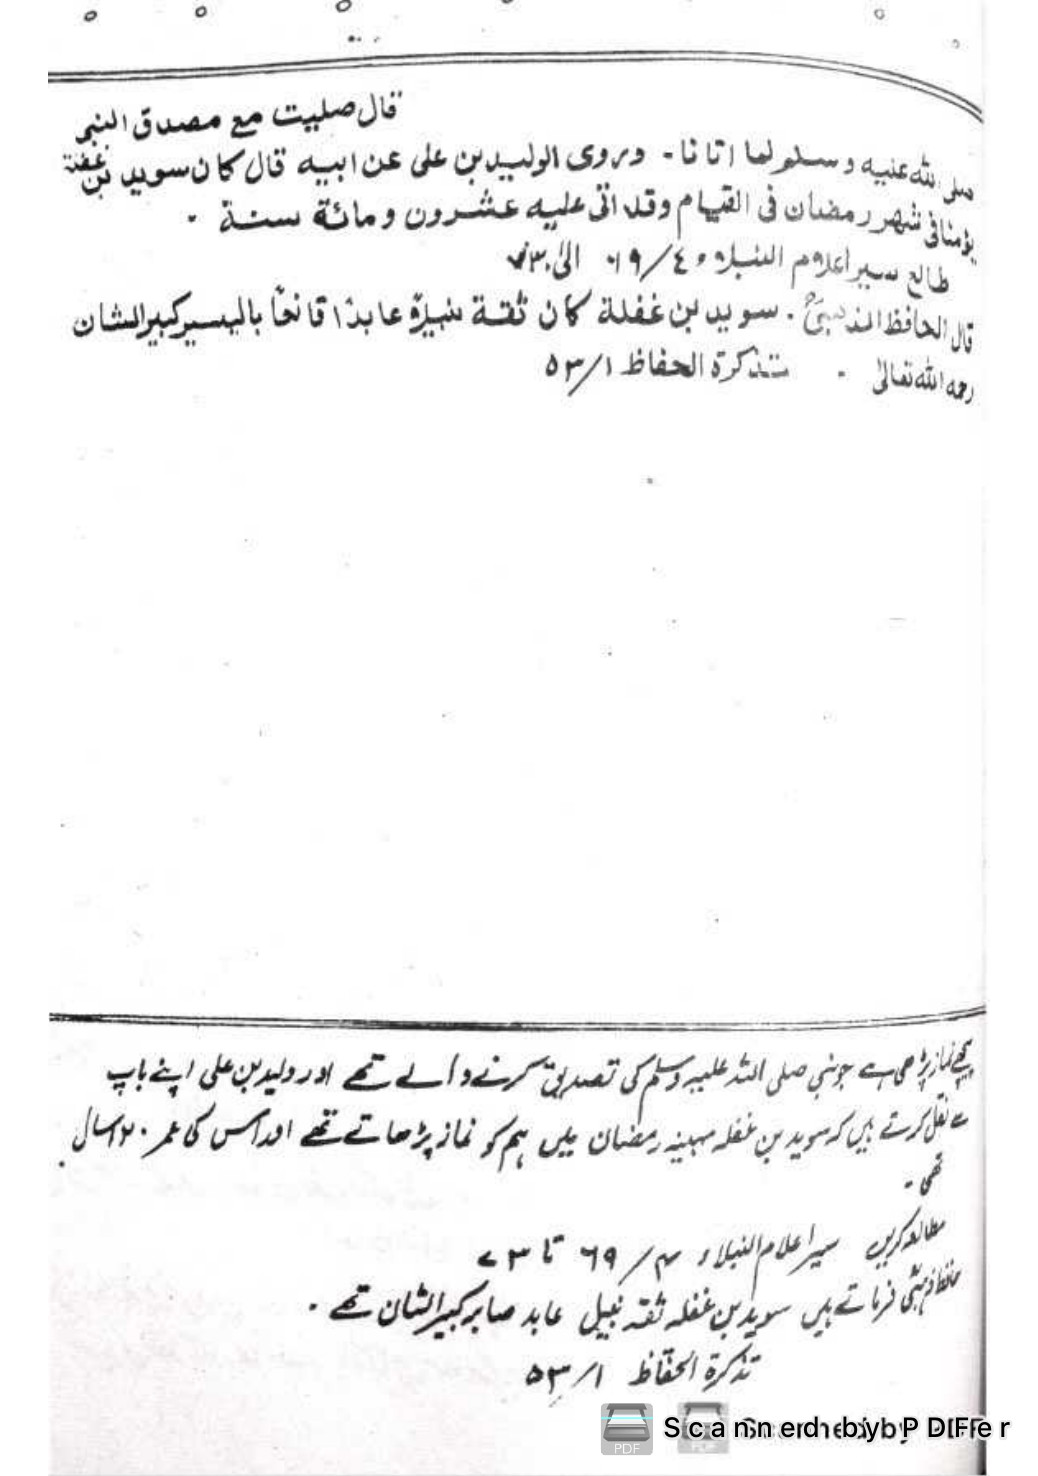 قال صليت مع مصدق النبى
صلى الله عليه وسلم لما اتانا - وروى الوليد بن على عن ابيه قال كان سويد بن غفلة
يؤمنا فى شهر رمضان فى القيام وقد اتى عليه عشرون ومائة سنة -
طالع سير اعلام النبلاء ٤/٦٩ الى ٧٣
قال الحافظ الذهبىؒ . سويد بن غفلة كان ثقة نبيلا عابدا قانعا باليسير كبير الشان
رحمه الله تعالىٰ - تذكرة الحفاظ ١/٥٣
پیچھے نماز پڑھی ہے جو نبی صلی اللہ علیہ وسلم کی تصدیق کرنے والے تھے اور ولید بن علی اپنے باپ
سے نقل کرتے ہیں کہ سوید بن غفلہ مہینہ رمضان میں ہم کو نماز پڑھاتے تھے اور اس کی عمر ۱۲۰ سال
تھی -
مطالعہ کریں سیر اعلام النبلاء ۴/۶۹ تا ۷۳
حافظ ذہبیؒ فرماتے ہیں سوید بن غفلہ ثقہ نبیل عابد صابر کبیر الشان تھے -
تذکرۃ الحفاظ ۱/۵۳
Scanned by PDFFer